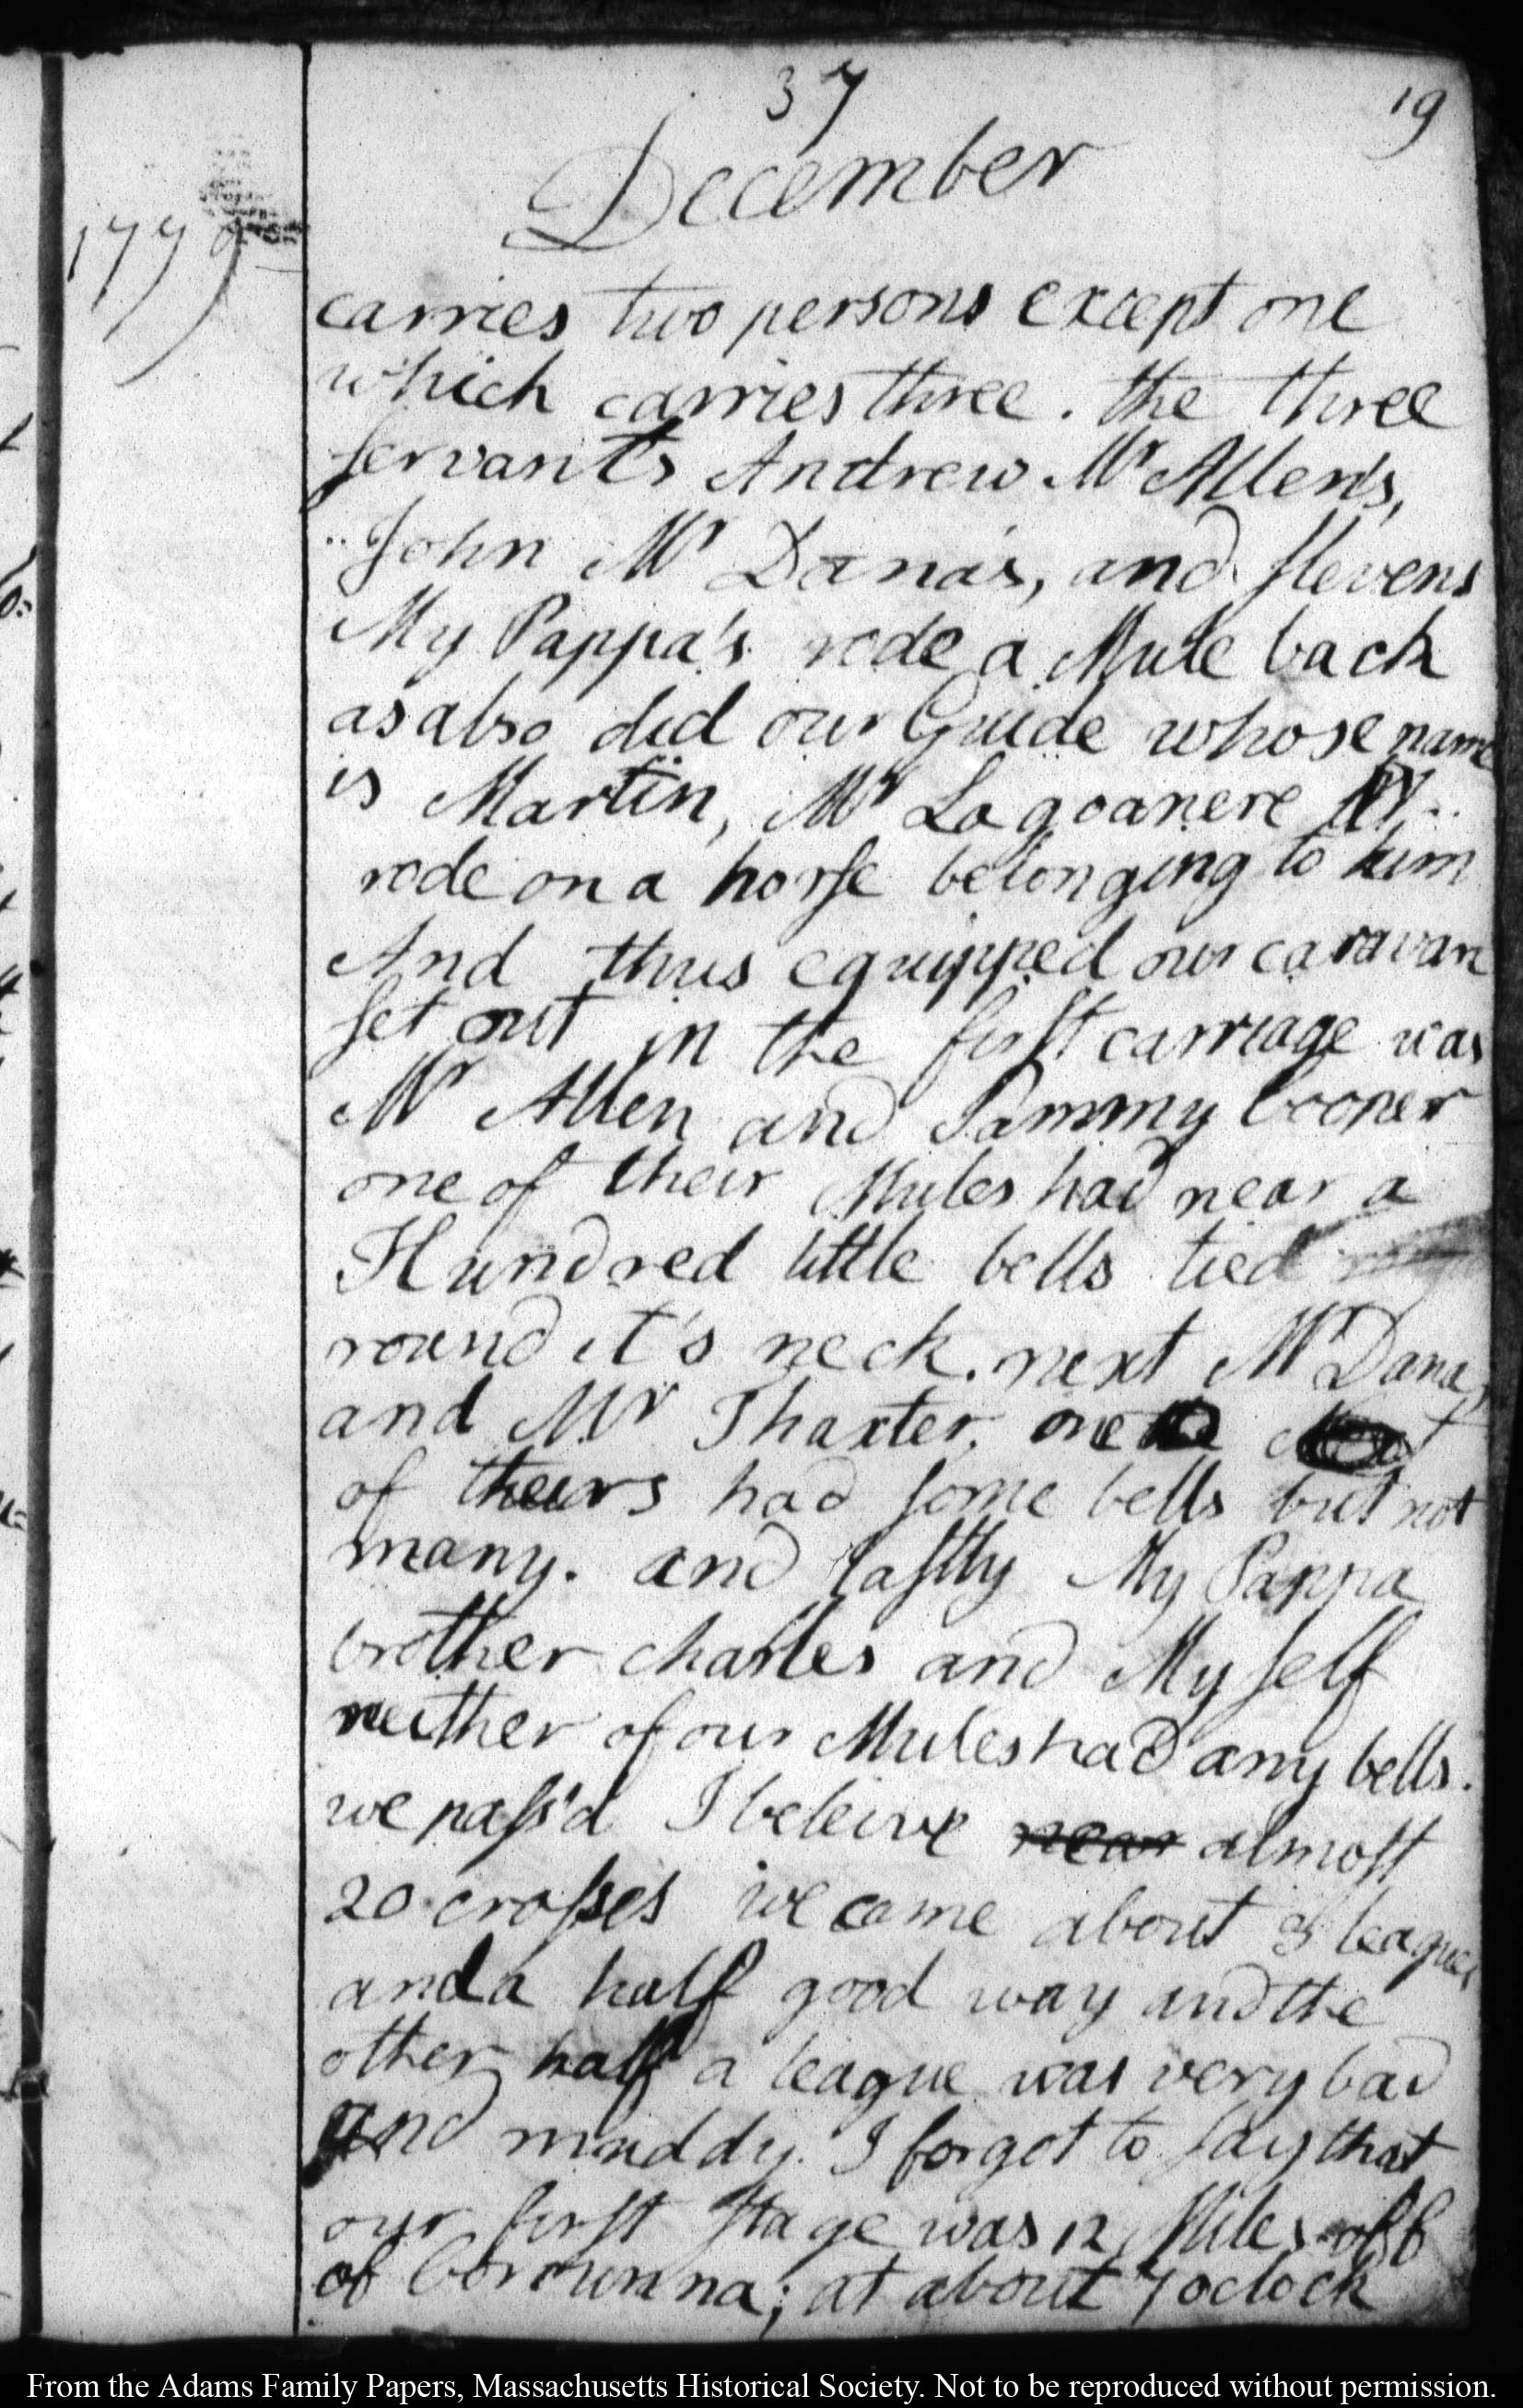 37
19
December
1779
carries two persons except one
which carries three. the three
servants Andrew Mr Allen's,
John Mr Dana's, and stevens
My Pappa's rode a Mule back
as also did our Guide whose name
is Martin, Mr Lagoanere
rode on a horse belonging to him
And thus equipped our caravan
set out in the first carriage was
Mr Allen and Sammy Cooper
one of their Mules had near a
Hundred little bells tied
round it's neck. next Mr Dana,
and Mr Thaxter. one
of theirs had some bells but not
many. and lastly My Pappa
brother charles and My self
neither of our Mules had any bells.
we pass'd I beleive near almost
20 crosses we came about 3 leagues
and a half good way and the
other half a league was very bad
and muddy. I forgot to say that
our first stage was 12 Miles off
of Corounna; at about 7 oclock
From the Adams Family Papers, Massachusetts Historical Society. Not to be reproduced without permission.